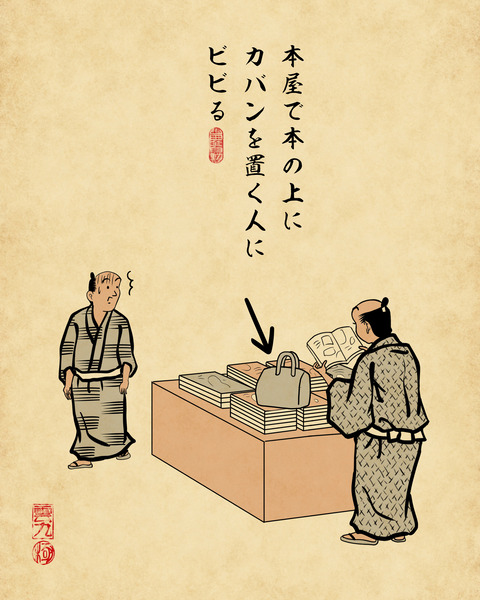 本屋で本の上に
カバンを置く人に
ビビる